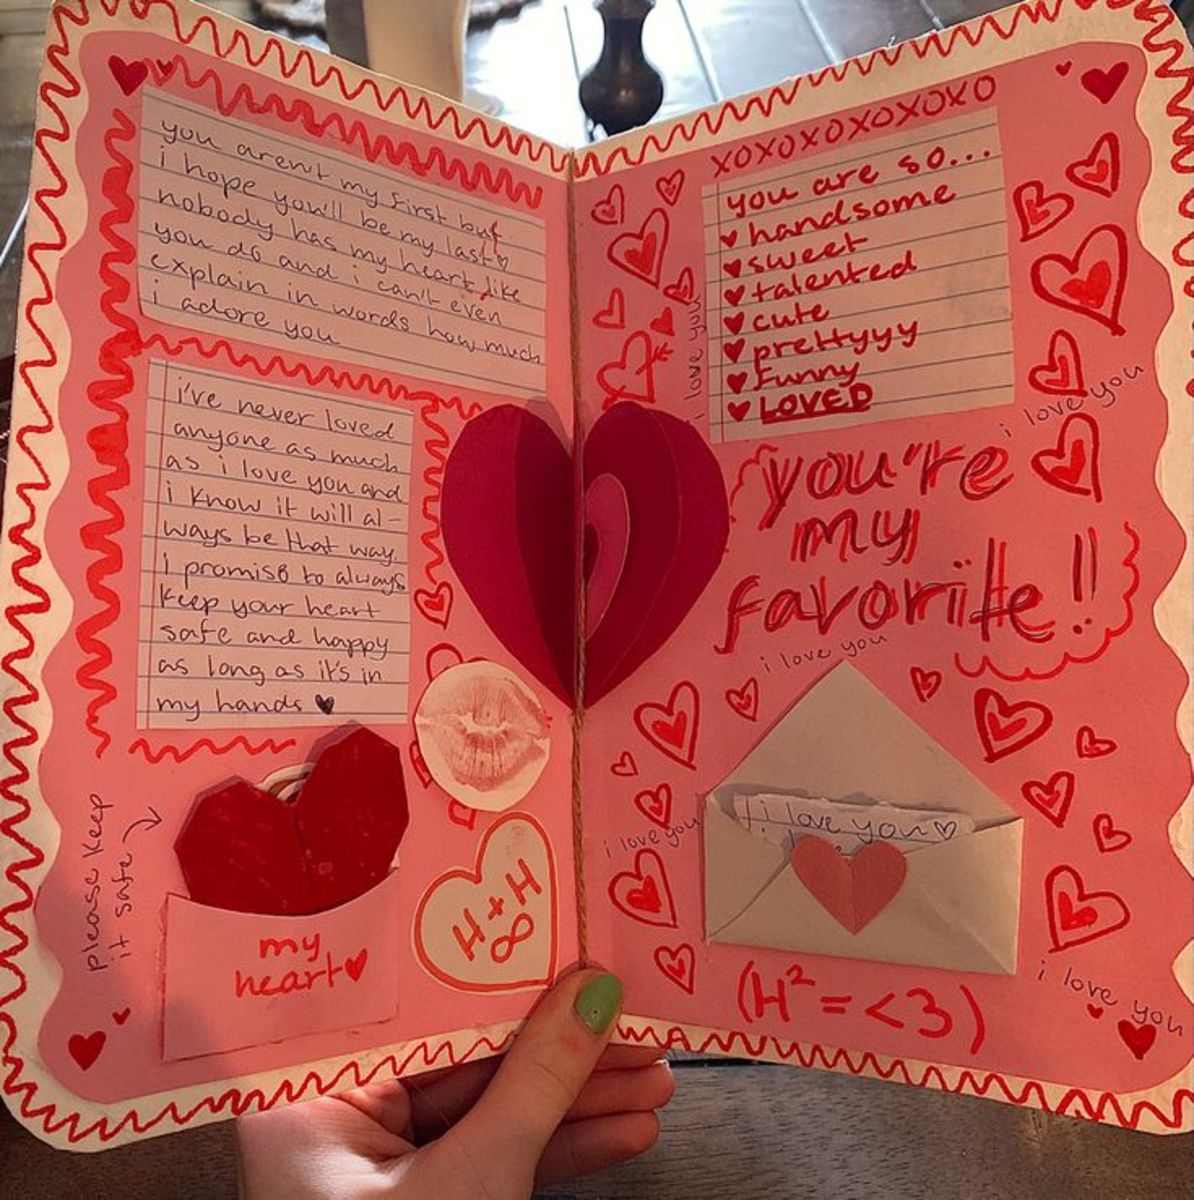 you aren't my first but
i hope you'll be my last♡
nobody has my heart like
you do and i can't even
explain in words how much
i adore you
i've never loved
anyone as much
as i love you and
i know it will al-
ways be that way
i promise to always
keep your heart
safe and happy
as long as it's in
my hands ♥
please keep
it safe
my
heart♥
H+H
∞
XOXOXOXOXOXO
you are so...
♥ handsome
♥ sweet
♥ talented
♥ cute
♥ prettyyy
♥ funny
♥ LOVED
i love you
i love you
you're
my
favorite!!
i love you
i love you♡
i love you
(H²=<3)
i love you